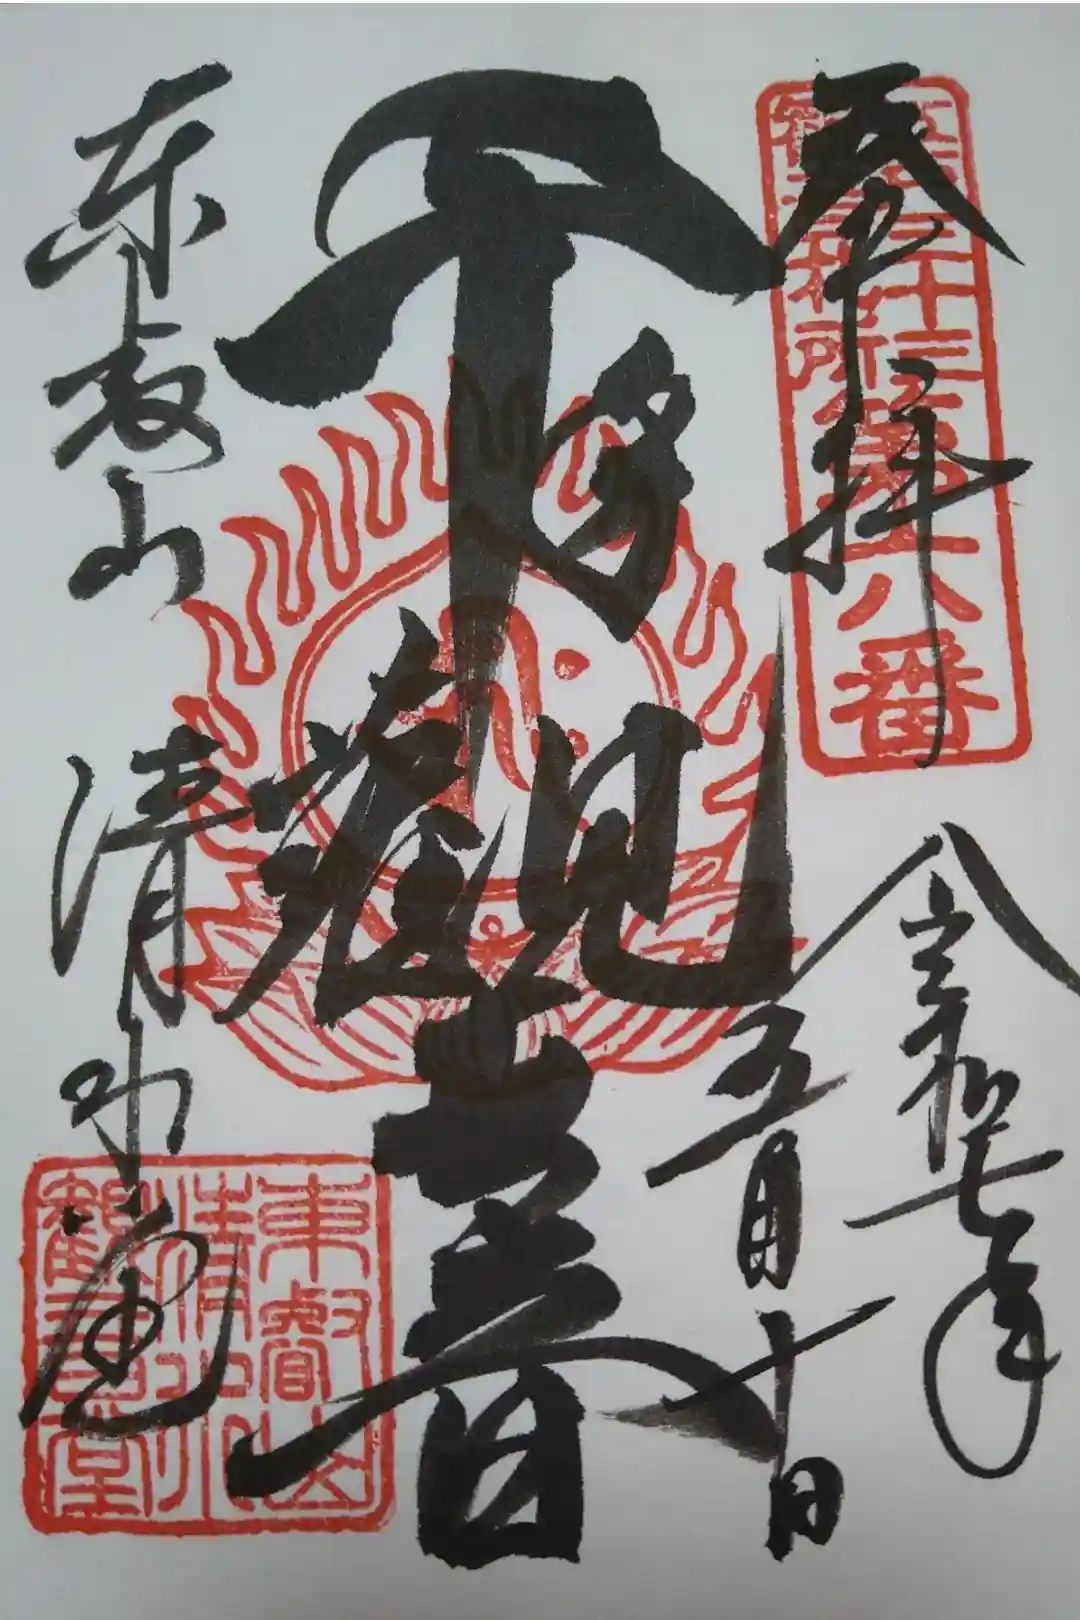 奉拝
江戸三十三
観音札所
第六番
令和七年
五月十日
千手
観音
東叡山
清水堂
東叡山
清水
観音堂